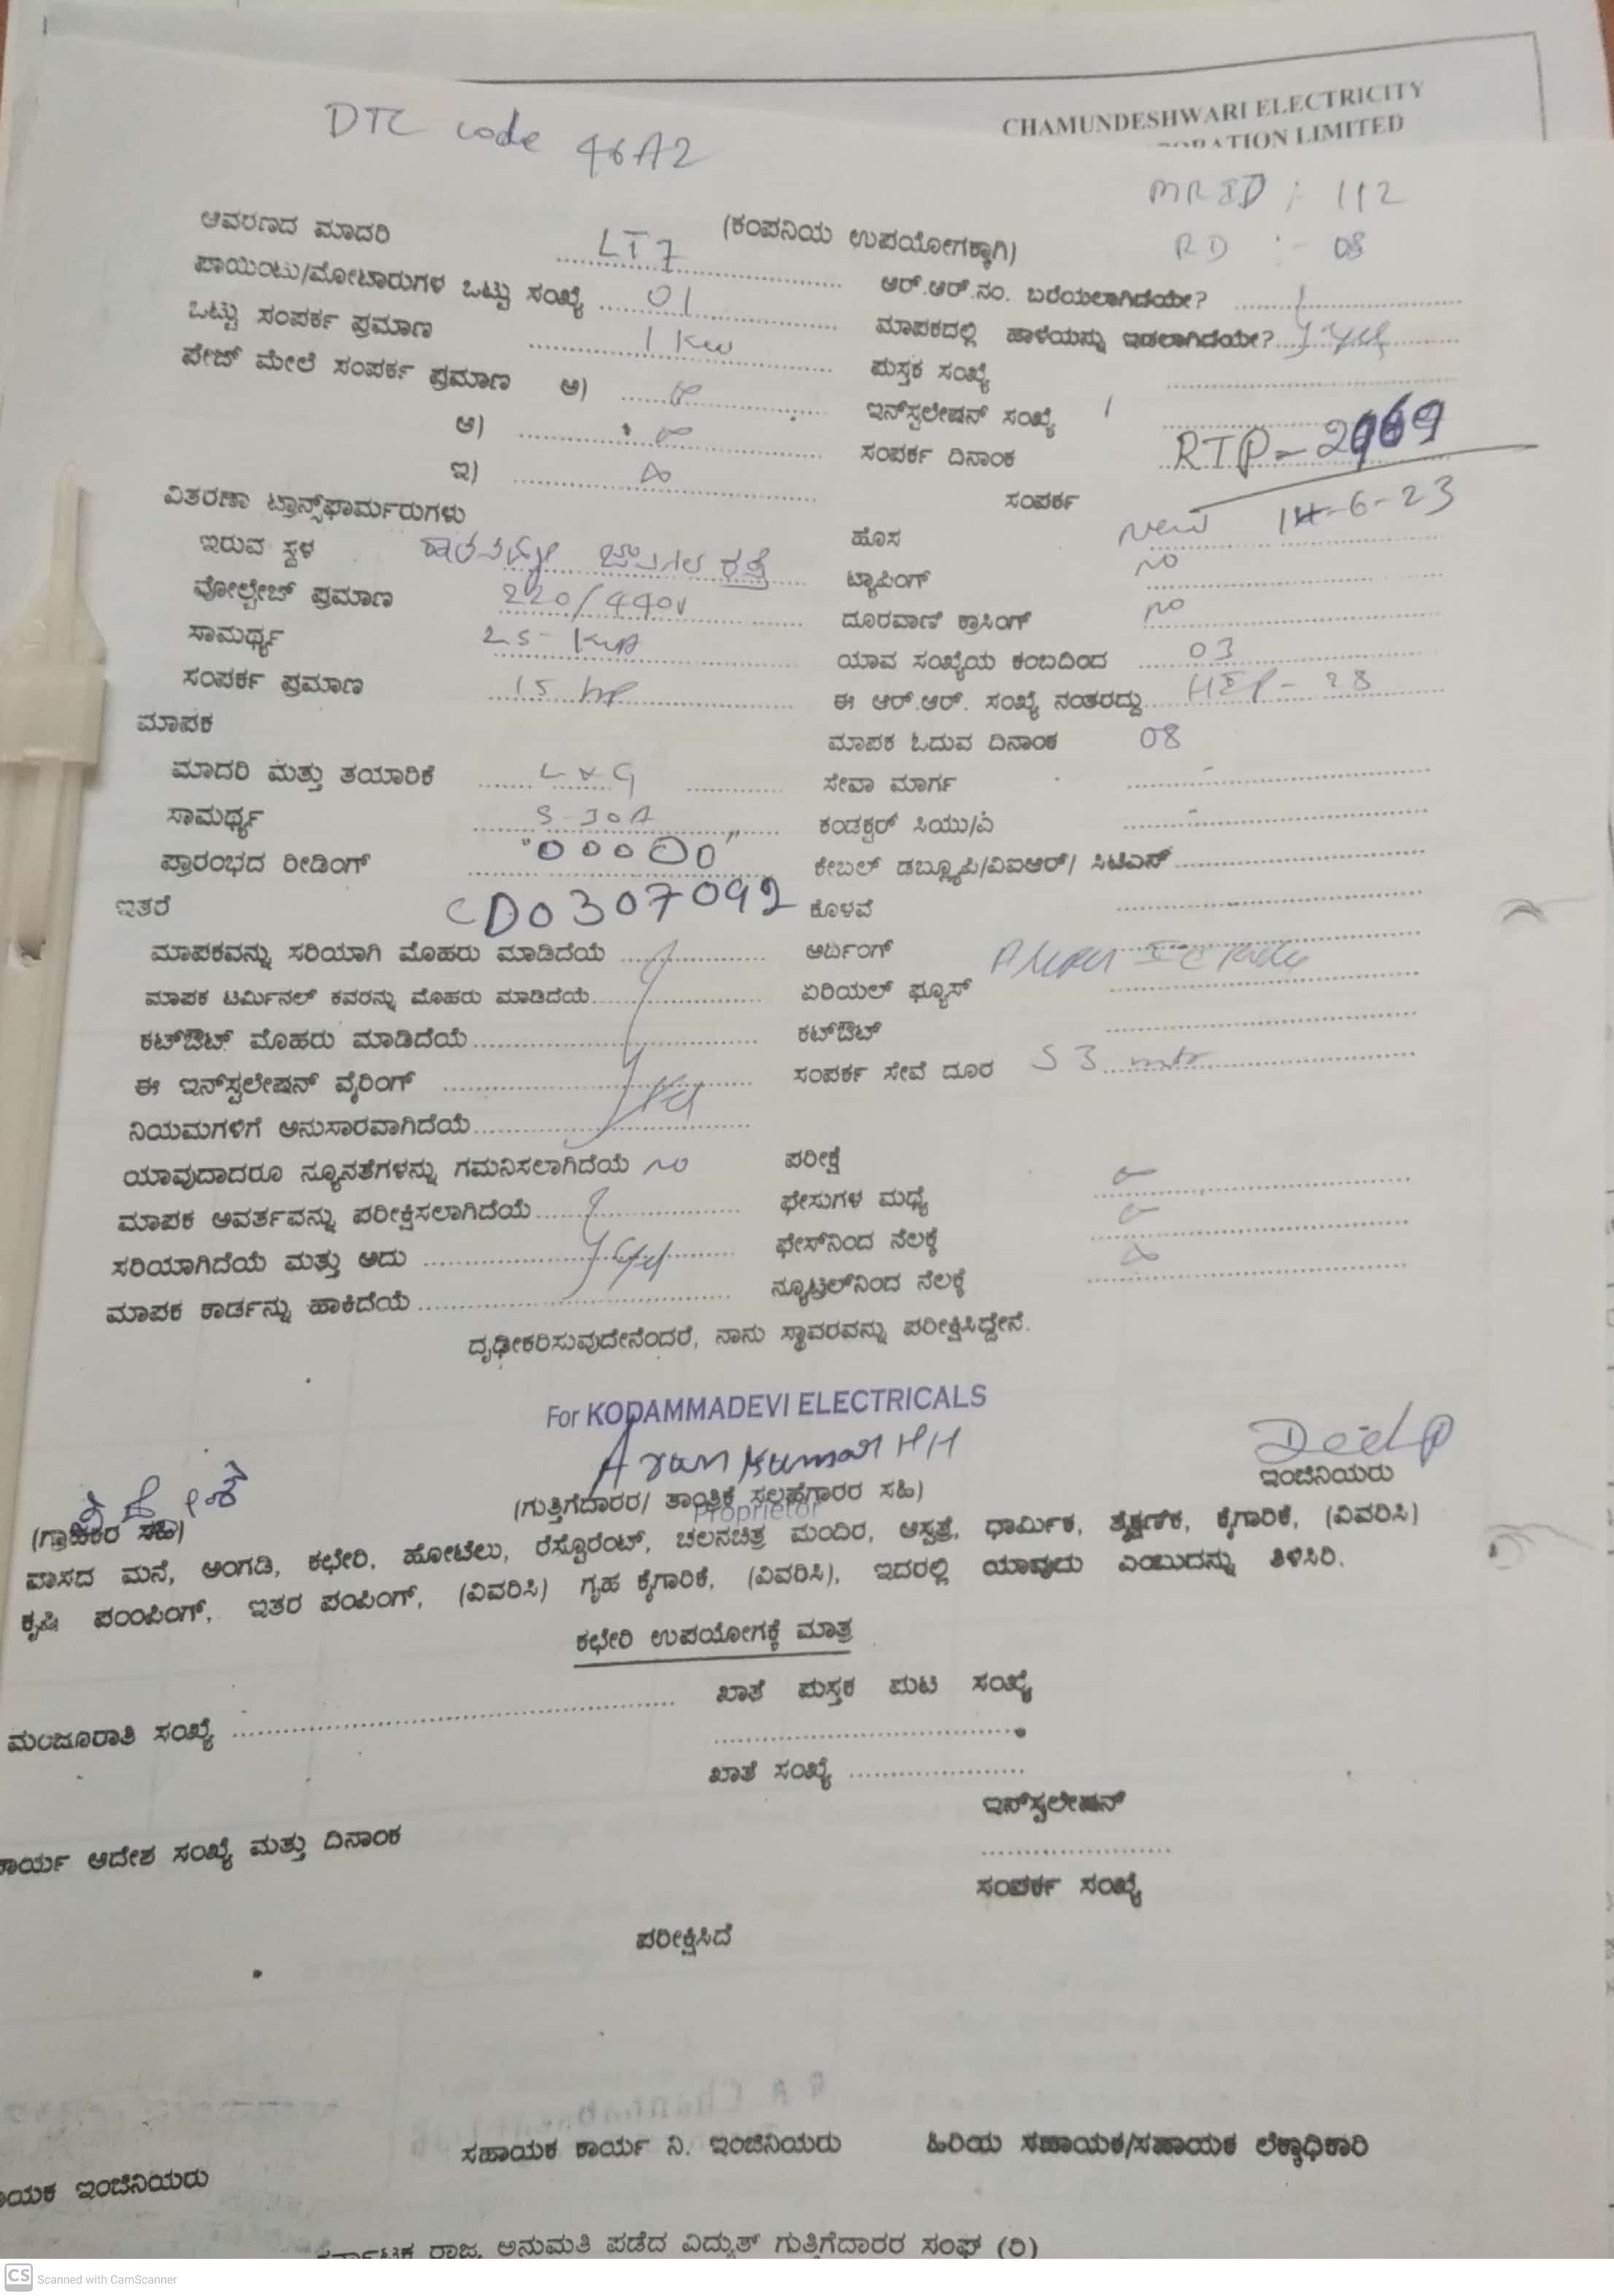 CHAMUNDESHWARI ELECTRICITY
LIMITED
DTC code 46A2
MRID : 112
RD :- 08
(ಕಂಪನಿಯ ಉಪಯೋಗಕ್ಕಾಗಿ)
ಆವರಣದ ಮಾದರಿ LT7
ಪಾಯಿಂಟು/ಮೋಟಾರುಗಳ ಒಟ್ಟು ಸಂಖ್ಯೆ 01
ಒಟ್ಟು ಸಂಪರ್ಕ ಪ್ರಮಾಣ 1 Kw
ಪೇಜ್ ಮೇಲೆ ಸಂಪರ್ಕ ಪ್ರಮಾಣ ಅ)
ಆ)
ಇ)
ವಿತರಣಾ ಟ್ರಾನ್ಸ್‌ಫಾರ್ಮರುಗಳು
ಇರುವ ಸ್ಥಳ
ವೋಲ್ಟೇಜ್ ಪ್ರಮಾಣ 220/440v
ಸಾಮರ್ಥ್ಯ 25-KVA
ಸಂಪರ್ಕ ಪ್ರಮಾಣ 15 hp
ಮಾಪಕ
ಮಾದರಿ ಮತ್ತು ತಯಾರಿಕೆ L&G
ಸಾಮರ್ಥ್ಯ 5-30A
ಪ್ರಾರಂಭದ ರೀಡಿಂಗ್ "00000"
ಇತರೆ CD0307092
ಮಾಪಕವನ್ನು ಸರಿಯಾಗಿ ಮೊಹರು ಮಾಡಿದೆಯೆ
ಮಾಪಕ ಟರ್ಮಿನಲ್ ಕವರನ್ನು ಮೊಹರು ಮಾಡಿದೆಯೆ
ಕಟ್‌ಔಟ್ ಮೊಹರು ಮಾಡಿದೆಯೆ
ಈ ಇನ್‌ಸ್ಟಲೇಷನ್ ವೈರಿಂಗ್
ನಿಯಮಗಳಿಗೆ ಅನುಸಾರವಾಗಿದೆಯೆ
ಯಾವುದಾದರೂ ನ್ಯೂನತೆಗಳನ್ನು ಗಮನಿಸಲಾಗಿದೆಯೆ no
ಮಾಪಕ ಆವರ್ತವನ್ನು ಪರೀಕ್ಷಿಸಲಾಗಿದೆಯೆ
ಸರಿಯಾಗಿದೆಯೆ ಮತ್ತು ಅದು
ಮಾಪಕ ಕಾರ್ಡನ್ನು ಹಾಕಿದೆಯೆ
ಆರ್.ಆರ್.ನಂ. ಬರೆಯಲಾಗಿದೆಯೇ?
ಮಾಪಕದಲ್ಲಿ ಹಾಳೆಯನ್ನು ಇಡಲಾಗಿದೆಯೇ? yes
ಪುಸ್ತಕ ಸಂಖ್ಯೆ
ಇನ್‌ಸ್ಟಲೇಷನ್ ಸಂಖ್ಯೆ
ಸಂಪರ್ಕ ದಿನಾಂಕ
ಸಂಪರ್ಕ
ಹೊಸ new 14-6-23
ಟ್ಯಾಪಿಂಗ್ no
ದೂರವಾಣಿ ಕ್ರಾಸಿಂಗ್ no
ಯಾವ ಸಂಖ್ಯೆಯ ಕಂಬದಿಂದ 03
ಈ ಆರ್.ಆರ್. ಸಂಖ್ಯೆ ನಂತರದ್ದು
ಮಾಪಕ ಓದುವ ದಿನಾಂಕ 08
ಸೇವಾ ಮಾರ್ಗ
ಕಂಡಕ್ಟರ್ ಸಿಯು/ಎ
ಕೇಬಲ್ ಡಬ್ಲ್ಯೂಪಿ/ವಿಐಆರ್/ ಸಿಟಿಎಸ್
ಕೊಳವೆ
ಅರ್ದಿಂಗ್
ಏರಿಯಲ್ ಫ್ಯೂಸ್
ಕಟ್‌ಔಟ್
ಸಂಪರ್ಕ ಸೇವೆ ದೂರ 53 mtr
ಪರೀಕ್ಷೆ
ಫೇಸುಗಳ ಮಧ್ಯೆ
ಫೇಸ್‌ನಿಂದ ನೆಲಕ್ಕೆ
ನ್ಯೂಟ್ರಲ್‌ನಿಂದ ನೆಲಕ್ಕೆ
ದೃಢೀಕರಿಸುವುದೇನೆಂದರೆ, ನಾನು ಸ್ಥಾವರವನ್ನು ಪರೀಕ್ಷಿಸಿದ್ದೇನೆ.
For KODAMMADEVI ELECTRICALS
Arun Kumar HH
ಇಂಜಿನಿಯರು
(ಗುತ್ತಿಗೆದಾರರ/ ತಾಂತ್ರಿಕ ಸಲಹೆಗಾರರ ಸಹಿ)
Proprietor
(ಗ್ರಾಹಕರ ಸಹಿ)
ವಾಸದ ಮನೆ, ಅಂಗಡಿ, ಕಛೇರಿ, ಹೋಟೆಲು, ರೆಸ್ಟೊರೆಂಟ್, ಚಲನಚಿತ್ರ ಮಂದಿರ, ಆಸ್ಪತ್ರೆ, ಧಾರ್ಮಿಕ, ಶೈಕ್ಷಣಿಕ, ಕೈಗಾರಿಕೆ, (ವಿವರಿಸಿ)
ಕೃಷಿ ಪಂಂಪಿಂಗ್, ಇತರ ಪಂಪಿಂಗ್, (ವಿವರಿಸಿ) ಗೃಹ ಕೈಗಾರಿಕೆ, (ವಿವರಿಸಿ), ಇದರಲ್ಲಿ ಯಾವುದು ಎಂಬುದನ್ನು ತಿಳಿಸಿರಿ.
ಕಛೇರಿ ಉಪಯೋಗಕ್ಕೆ ಮಾತ್ರ
ಖಾತೆ ಪುಸ್ತಕ ಪುಟ ಸಂಖ್ಯೆ
ಮಂಜೂರಾತಿ ಸಂಖ್ಯೆ
ಖಾತೆ ಸಂಖ್ಯೆ
ಇನ್‌ಸ್ಟಲೇಷನ್
ಕಾರ್ಯ ಆದೇಶ ಸಂಖ್ಯೆ ಮತ್ತು ದಿನಾಂಕ
ಸಂಪರ್ಕ ಸಂಖ್ಯೆ
ಪರೀಕ್ಷಿಸಿದೆ
ಸಹಾಯಕ ಕಾರ್ಯ ನಿ. ಇಂಜಿನಿಯರು ಹಿರಿಯ ಸಹಾಯಕ/ಸಹಾಯಕ ಲೆಕ್ಕಾಧಿಕಾರಿ
ಇಂಜಿನಿಯರು
ರಾಜ್ಯ ಅನುಮತಿ ಪಡೆದ ವಿದ್ಯುತ್ ಗುತ್ತಿಗೆದಾರರ ಸಂಘ (ರಿ)
CS Scanned with CamScanner